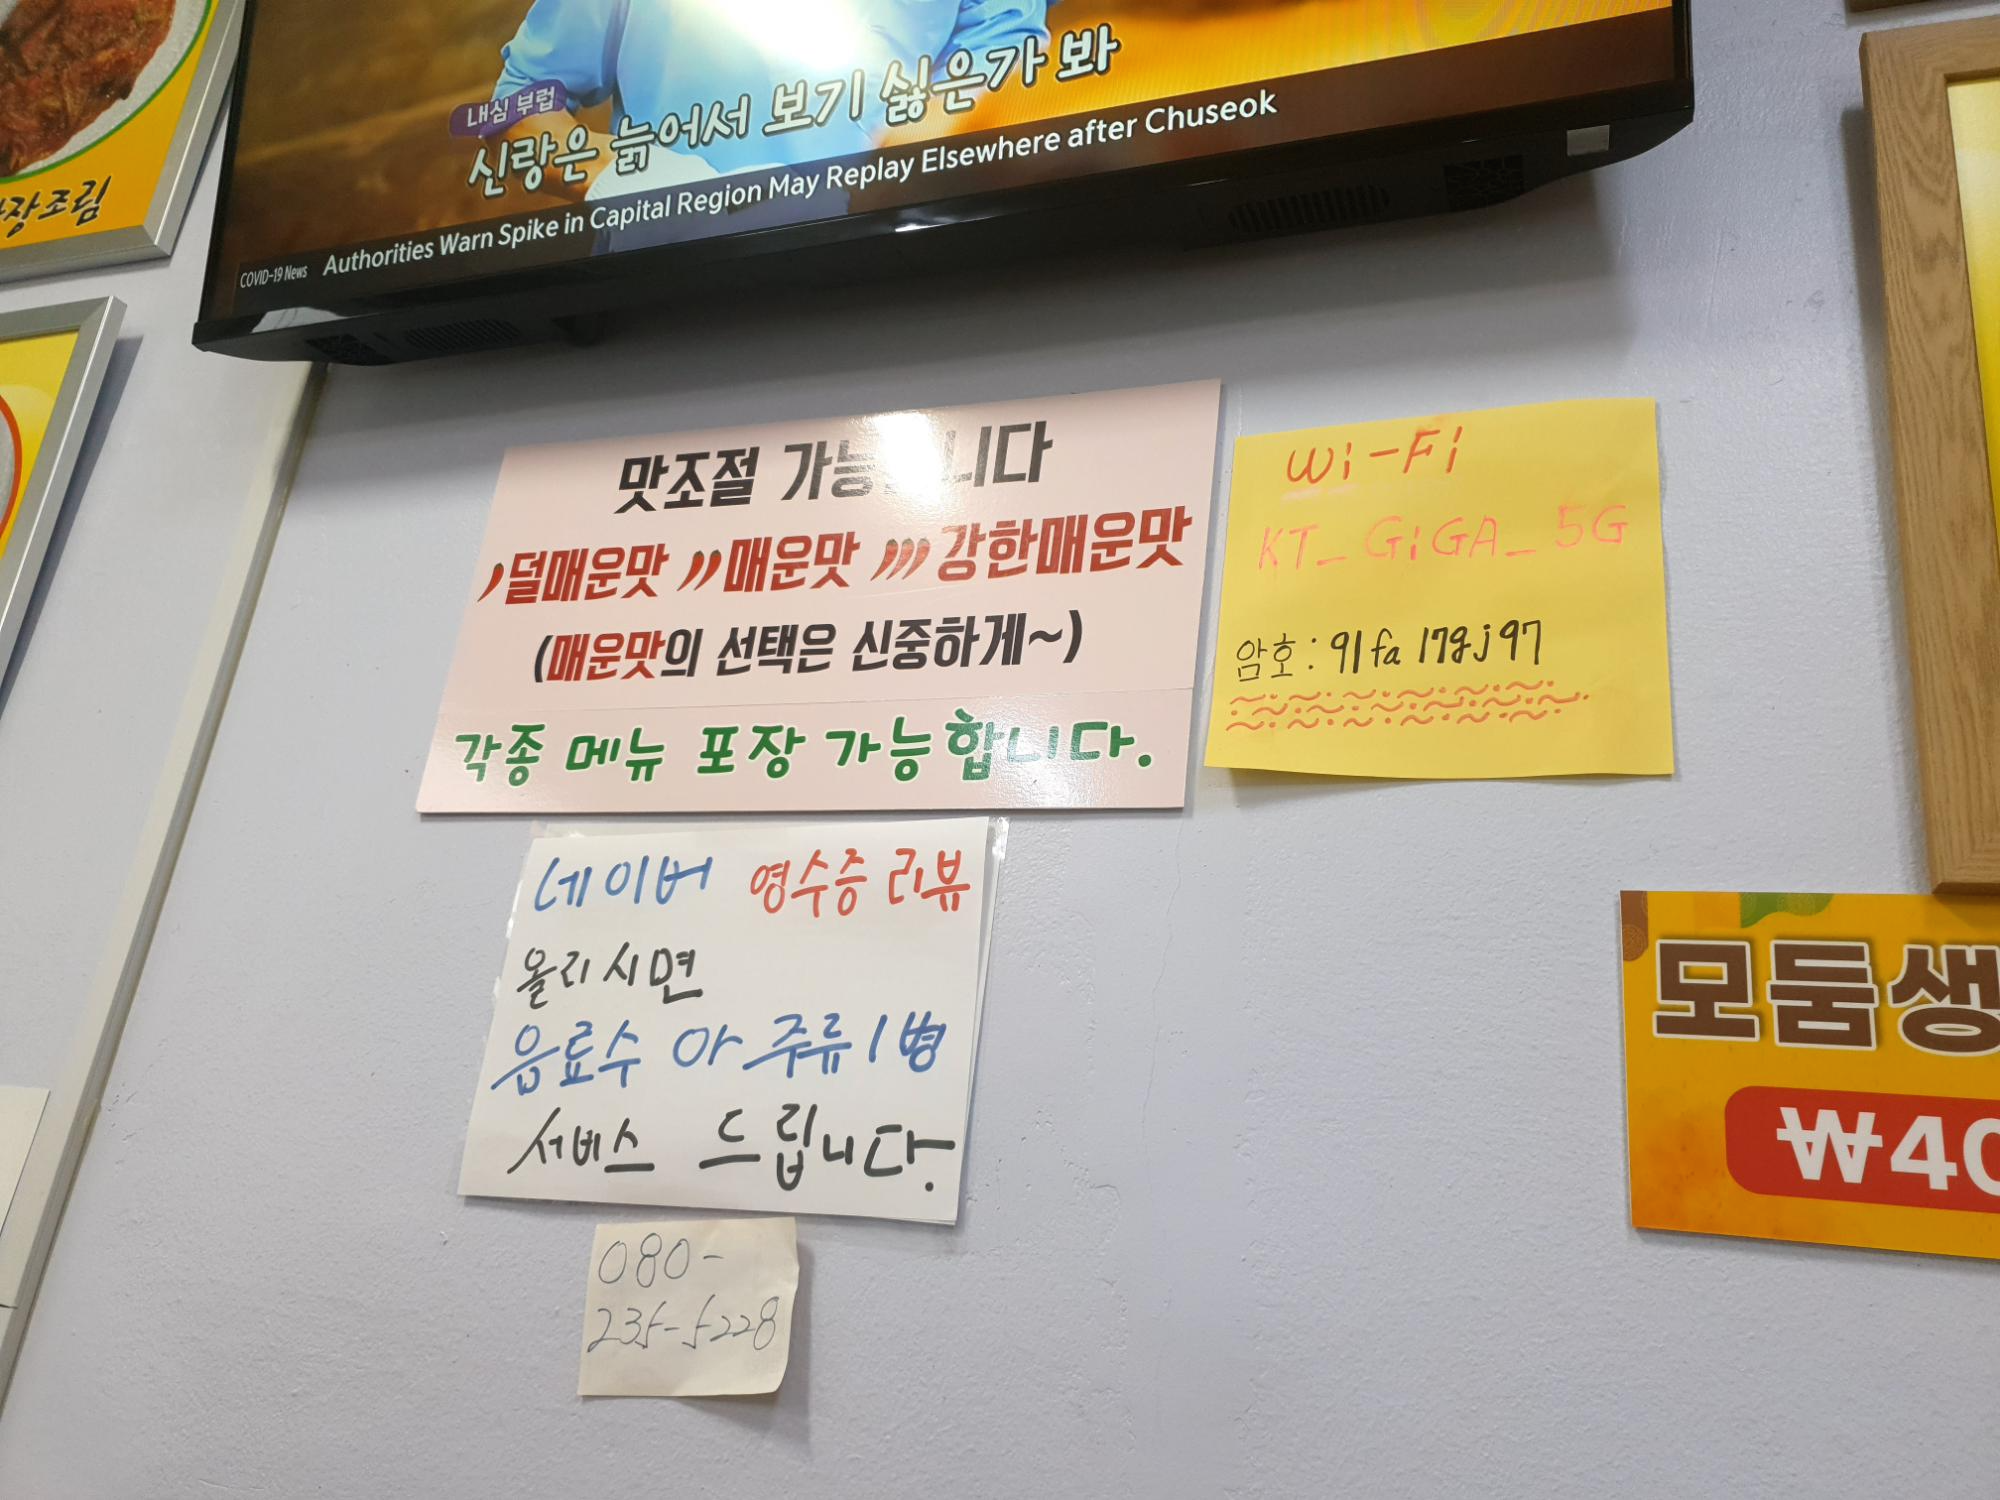 내심 부럽
신랑은 늙어서 보기 싫은가 봐
COVID-19 News Authorities Warn Spike in Capital Region May Replay Elsewhere after Chuseok
장조림
맛조절
덜매운맛 매운맛 강한매운맛
(매운맛의 선택은 신중하게~)
각종 메뉴 포장 가능합니다.
Wi-Fi
KT_GiGA_5G
암호: 91fa17gj97
네이버 영수증 리뷰
올리시면
음료수 or 주류 1병
서비스 드립니다.
080-
235-5228
모둠생
₩40